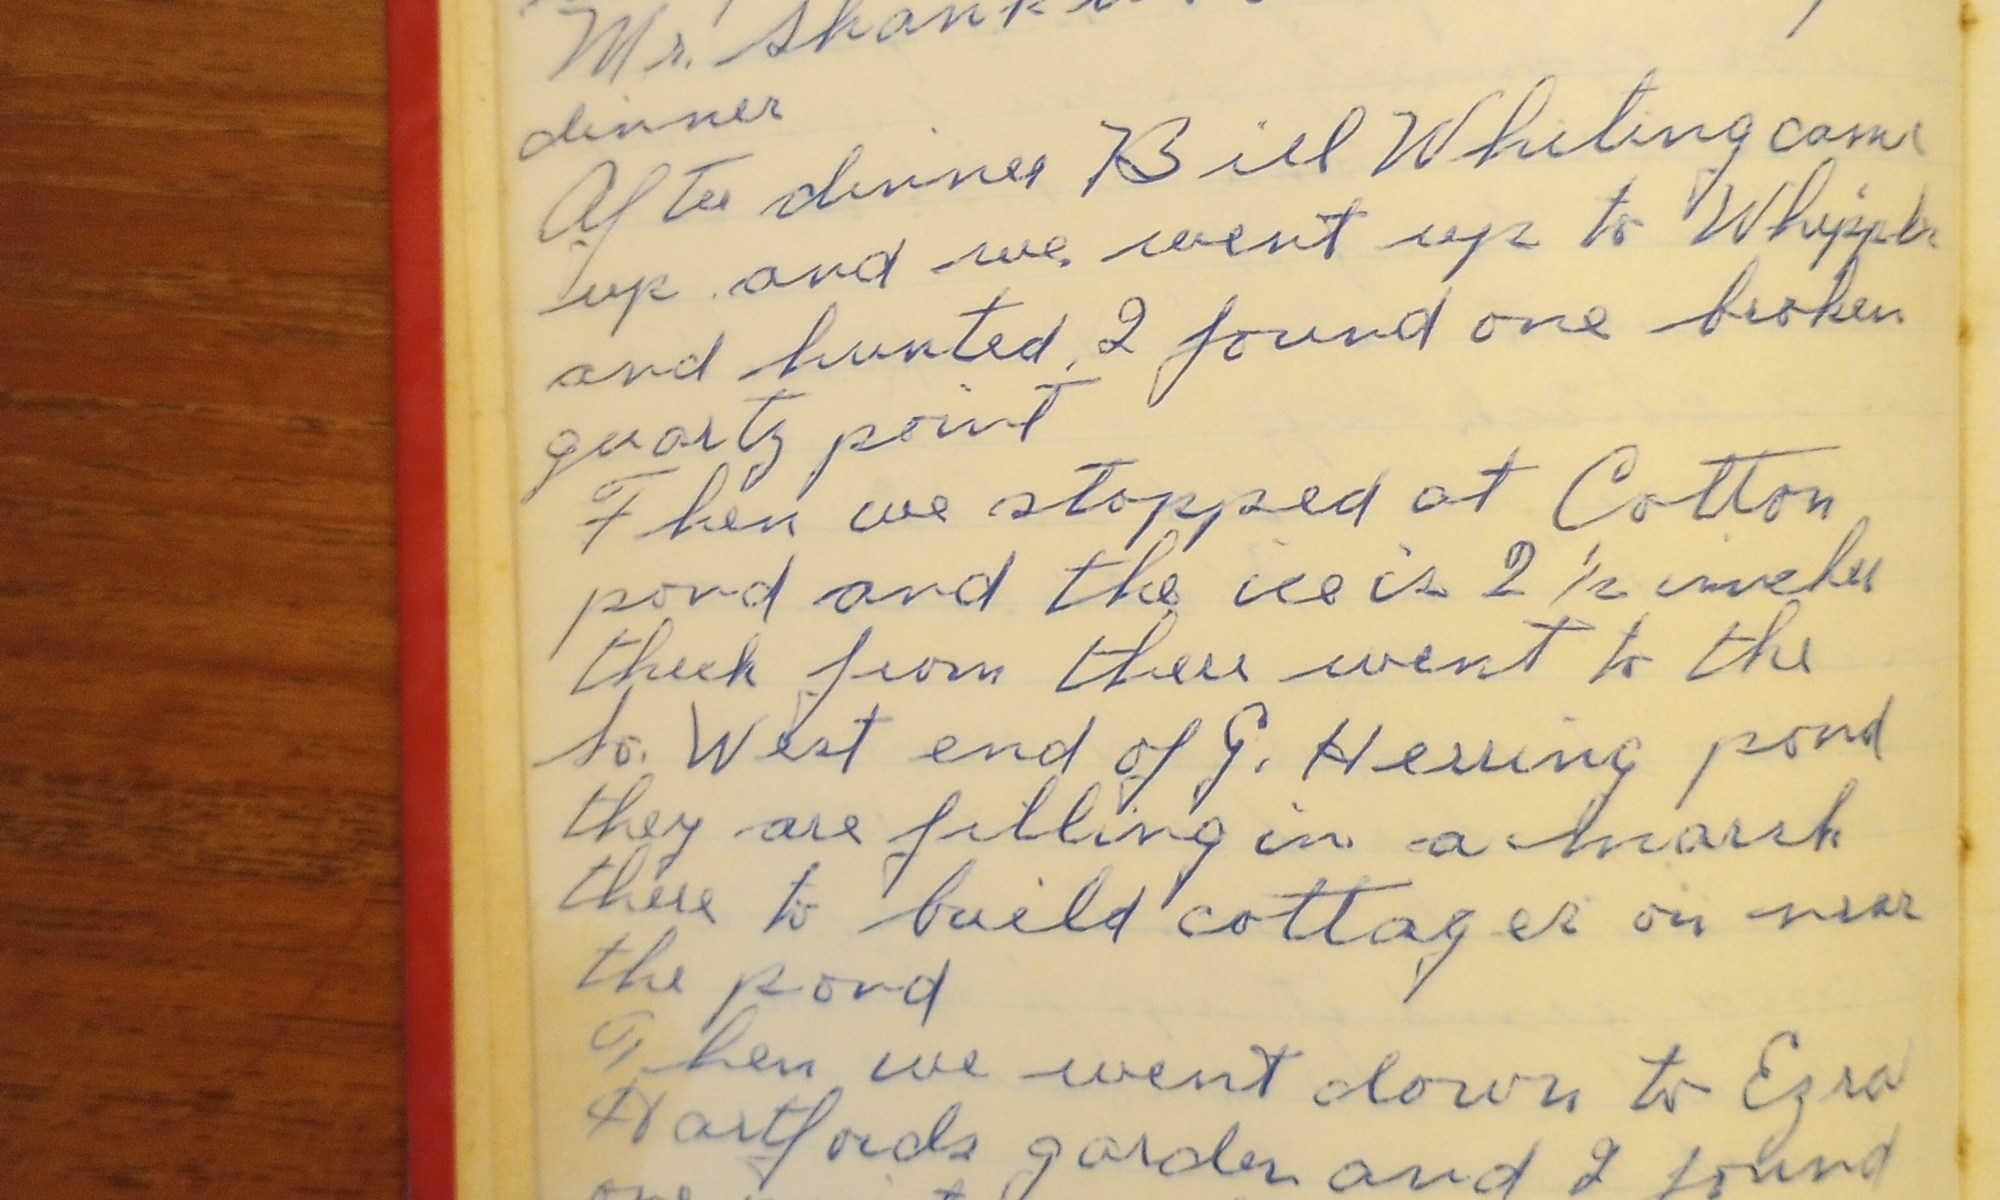 Mr.
dinner
After dinner Bill Whiting came
up and we went up to
and hunted, I found one broken
quartz point
Then we stopped at Cotton
pond and the ice is 2 1/2 inches
thick from there went to the
So. West end of G. Herring pond
they are filling in a marsh
there to build cottages on near
the pond
Then we went down to Ezra
Hartfords garden and I found
one